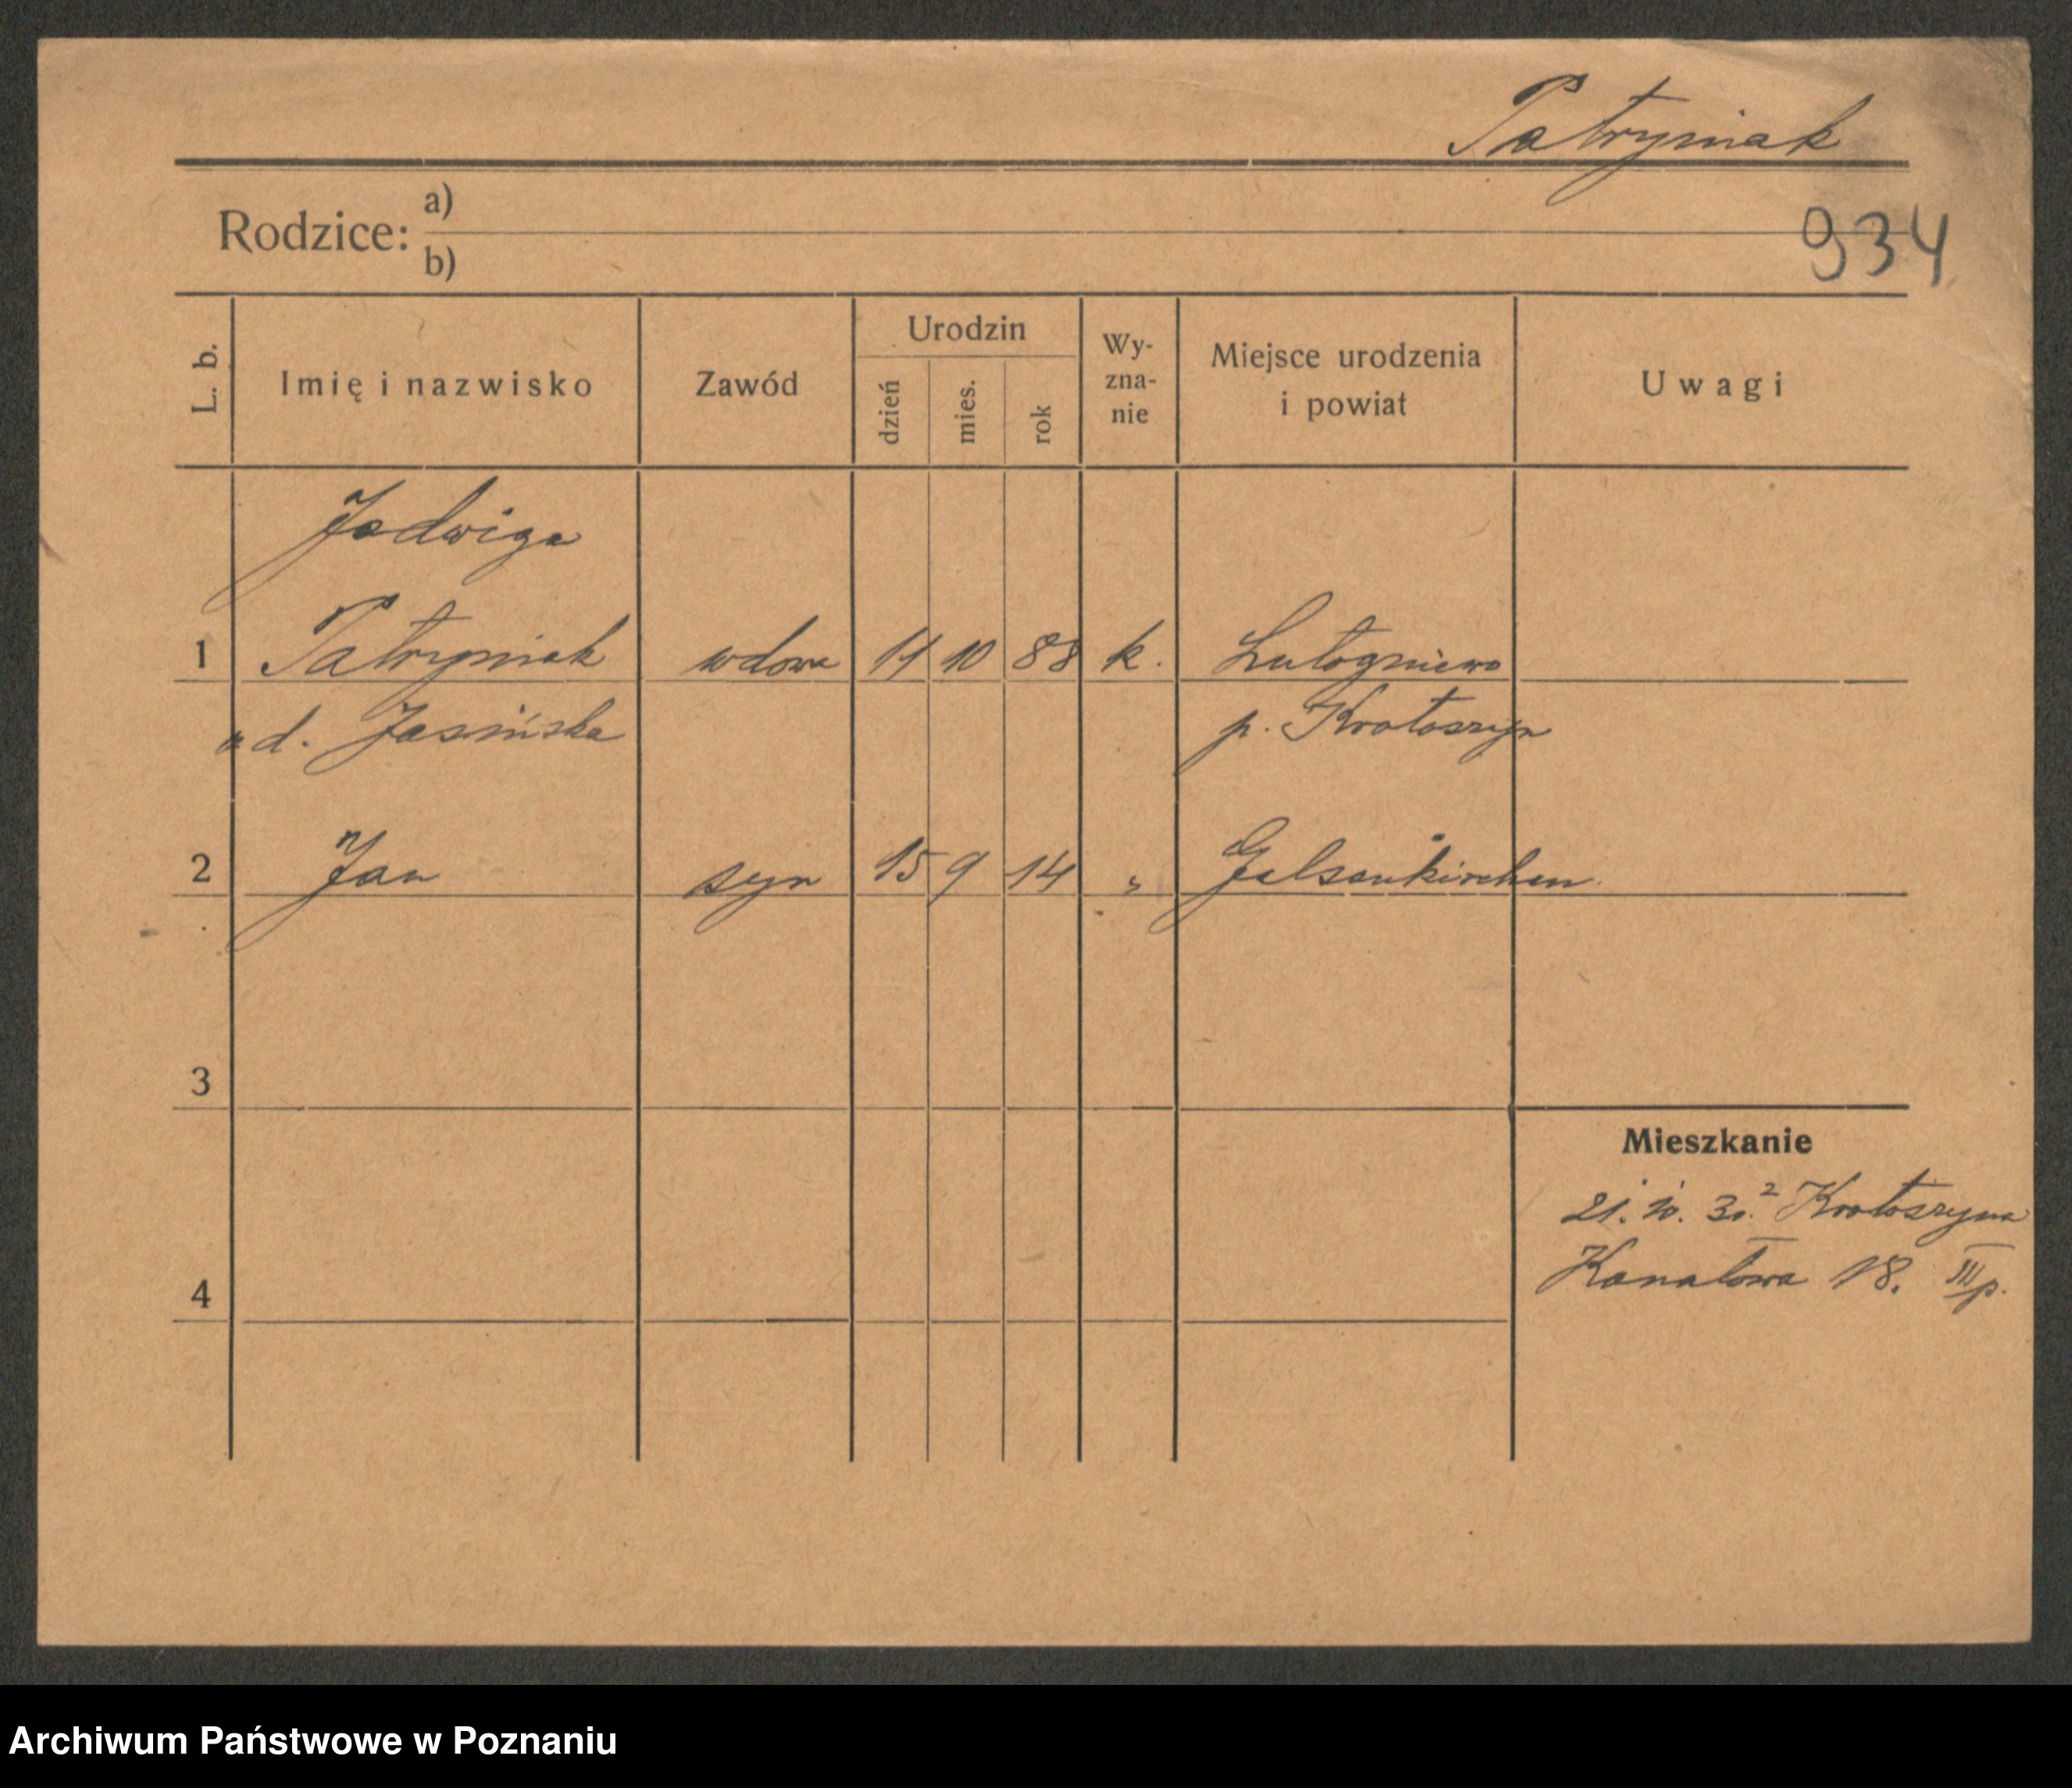 Patryniak
Rodzice: a)
b)
934
L. b.
Imię i nazwisko
Zawód
Urodzin
dzień
mies.
rok
Wy-
zna-
nie
Miejsce urodzenia
i powiat
Uwagi
Jadwiga
1 Patryniak wdowa 11 10 88 k. Lutogniewo
d. Jasińska p. Krotoszyn
2 Jan syn 15 9 14 " Gelsenkirchen
3
Mieszkanie
21. 10. 30. z Krotoszyna
4
Kanałowa 18. III p.
Archiwum Państwowe w Poznaniu